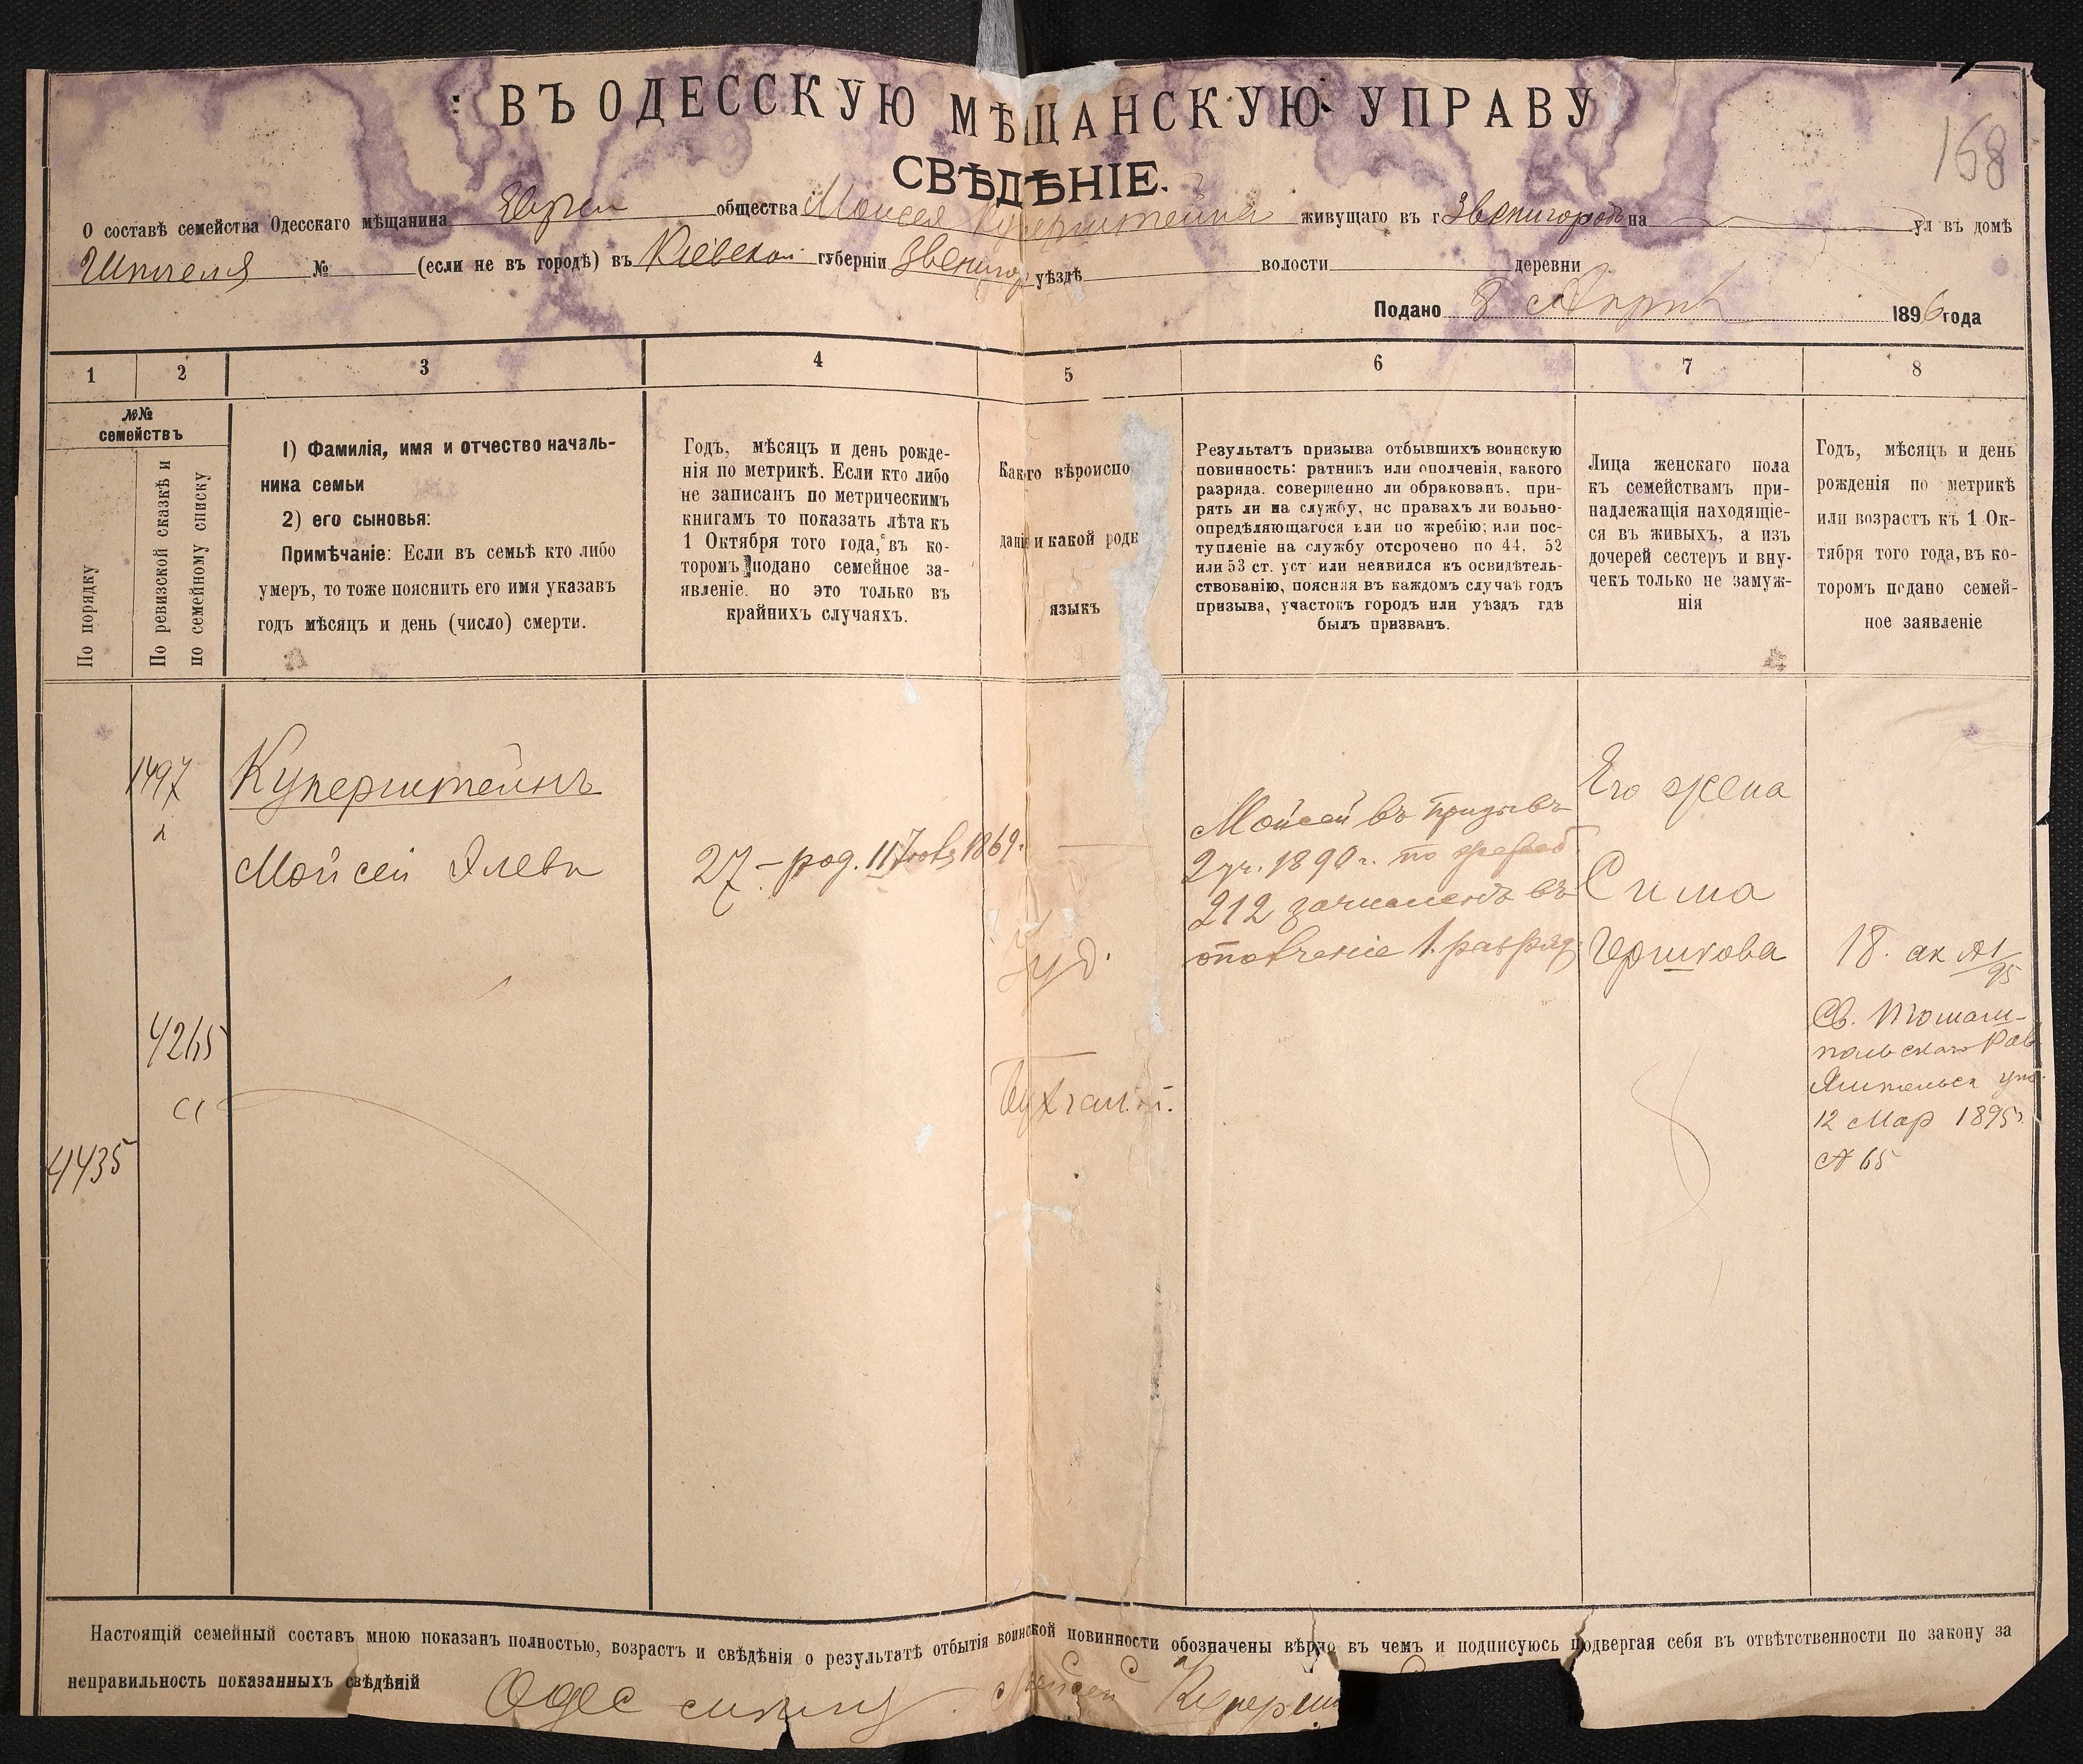 168
ВЪ ОДЕССКУЮ МѢЩАНСКУЮ УПРАВУ
СВѢДѢНІЕ.
О составѣ семейства Одесскаго мѣщанина общества Моисея Куперштейна живущаго въ г Звенигородкѣ на ул въ домѣ
№ (если не въ городѣ) въ Кіевской губерніи Звениго уѣздѣ волости деревни
Подано 8 Апрѣл 1896 года
1 2 3 4 5 6 7 8
№№ семействъ
По порядку
По ревизской сказкѣ и
по семейному списку
1) Фамилія, имя и отчество началь-
ника семьи
2) его сыновья:
Примѣчаніе: Если въ семьѣ кто либо
умеръ, то тоже пояснить его имя указавъ
годъ мѣсяцъ и день (число) смерти.
Годъ, мѣсяцъ и день рожде-
нія по метрикѣ. Если кто либо
не записанъ по метрическимъ
книгамъ то показать лѣта къ
1 Октября того года, въ ко-
торомъ подано семейное за-
явленіе. но это только въ
крайнихъ случаяхъ.
Какого вѣроиспо
даніе и какой родн
языкъ
Результатъ призыва отбывшихъ воинскую
повинность: ратник или ополченія, какого
разряда. совершенно ли обракованъ. при-
рять ли на службу, нс правахъ ли вольно-
опредѣляющагося или по жребію; или пос-
тупленіе на службу отсрочено по 44, 52
или 53 ст. уст или неявился къ освидѣтель-
ствованію, поясняя въ каждомъ случаѣ годъ
призыва, участокъ городъ или уѣздъ гдѣ
былъ призванъ.
Лица женскаго пола
къ семействамъ при-
надлежащія находящіе-
ся въ живыхъ, а изъ
дочерей сестеръ и вну-
чекъ только не замуж-
нія
Годъ, мѣсяцъ и день
рожденія по метрикѣ
или возрастъ къ 1 Ок-
тября того года, въ ко-
торомъ подано семей-
ное заявленіе
1497
Куперштейнъ
Мойсей Элевъ
27 – род. 11 1869.
Іуд.
Мойсей въ призывъ
2 уч. 1890 г. по жреб.
212 зачисленъ въ
ополченіе 1. разряд
Его жена
Сима
Гершкова
18. ак №1/95
Св.
12 Мар 1895
№ 65
4265
4435
Настоящій семейный составъ мною показанъ полностью, возрастъ и свѣдѣнія о результатѣ отбытія воинской повинности обозначены вѣрно въ чемъ и подписуюсь подвергая себя въ отвѣтственности по закону за
неправильность показанныхъ свѣдѣній
Одес Мойсей Куперш